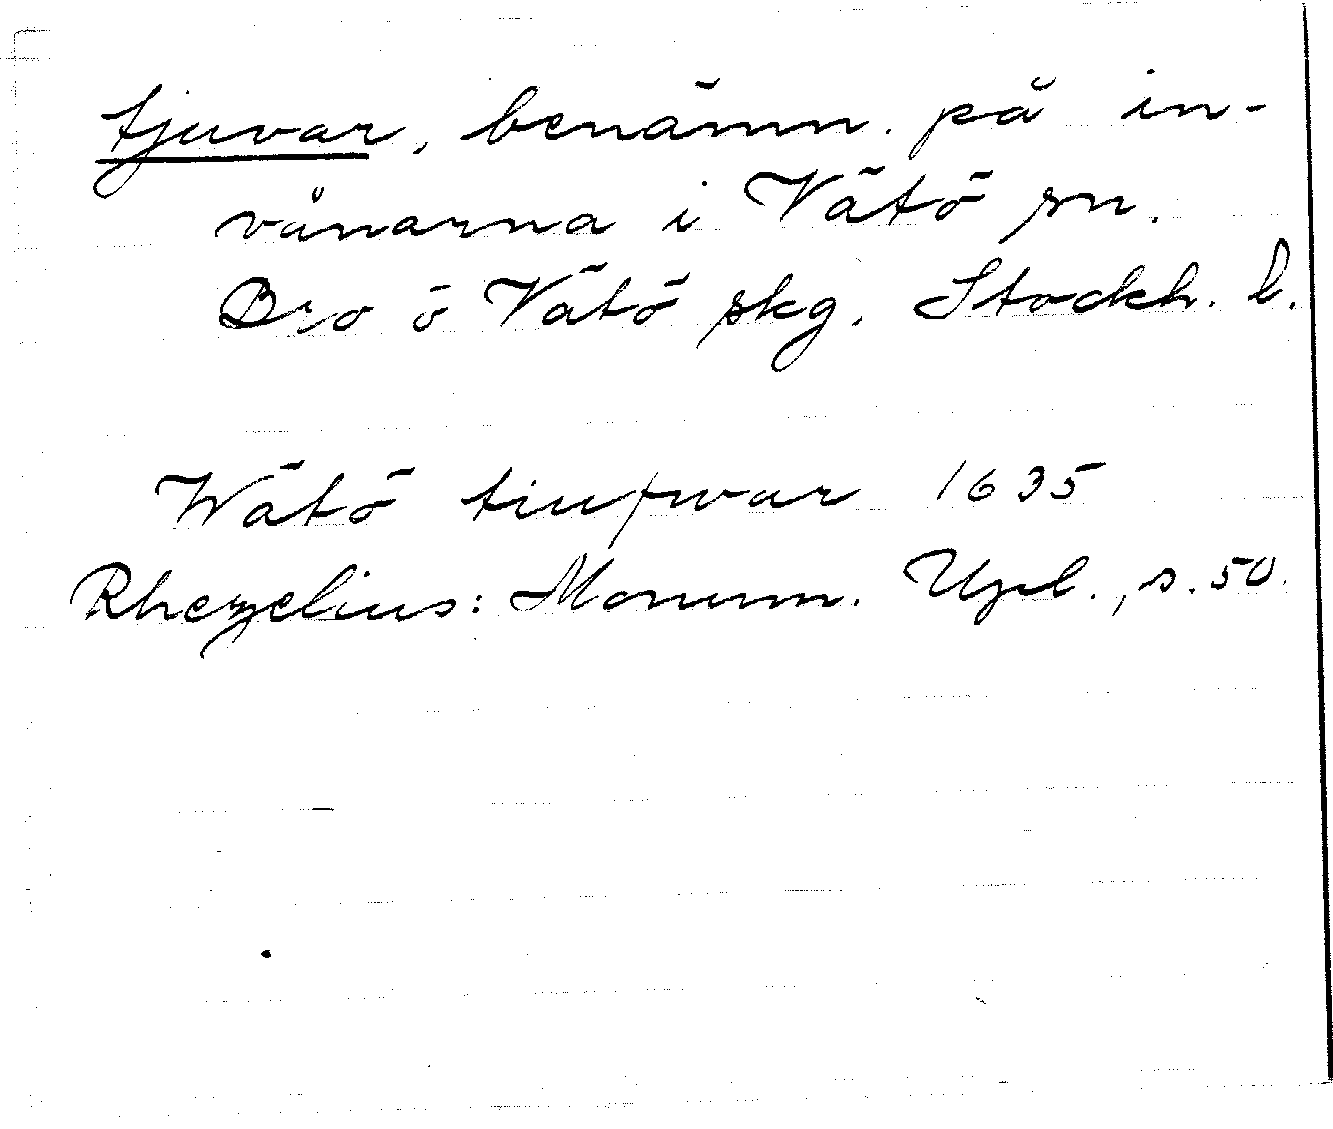 tjuvar, benämn. på in-
vånarna i Vätö sn.
Bro o Vätö skg. Stockh. l.
Wätö tiufwar 1635
Rhezelius: Monum. Upl., s. 50.